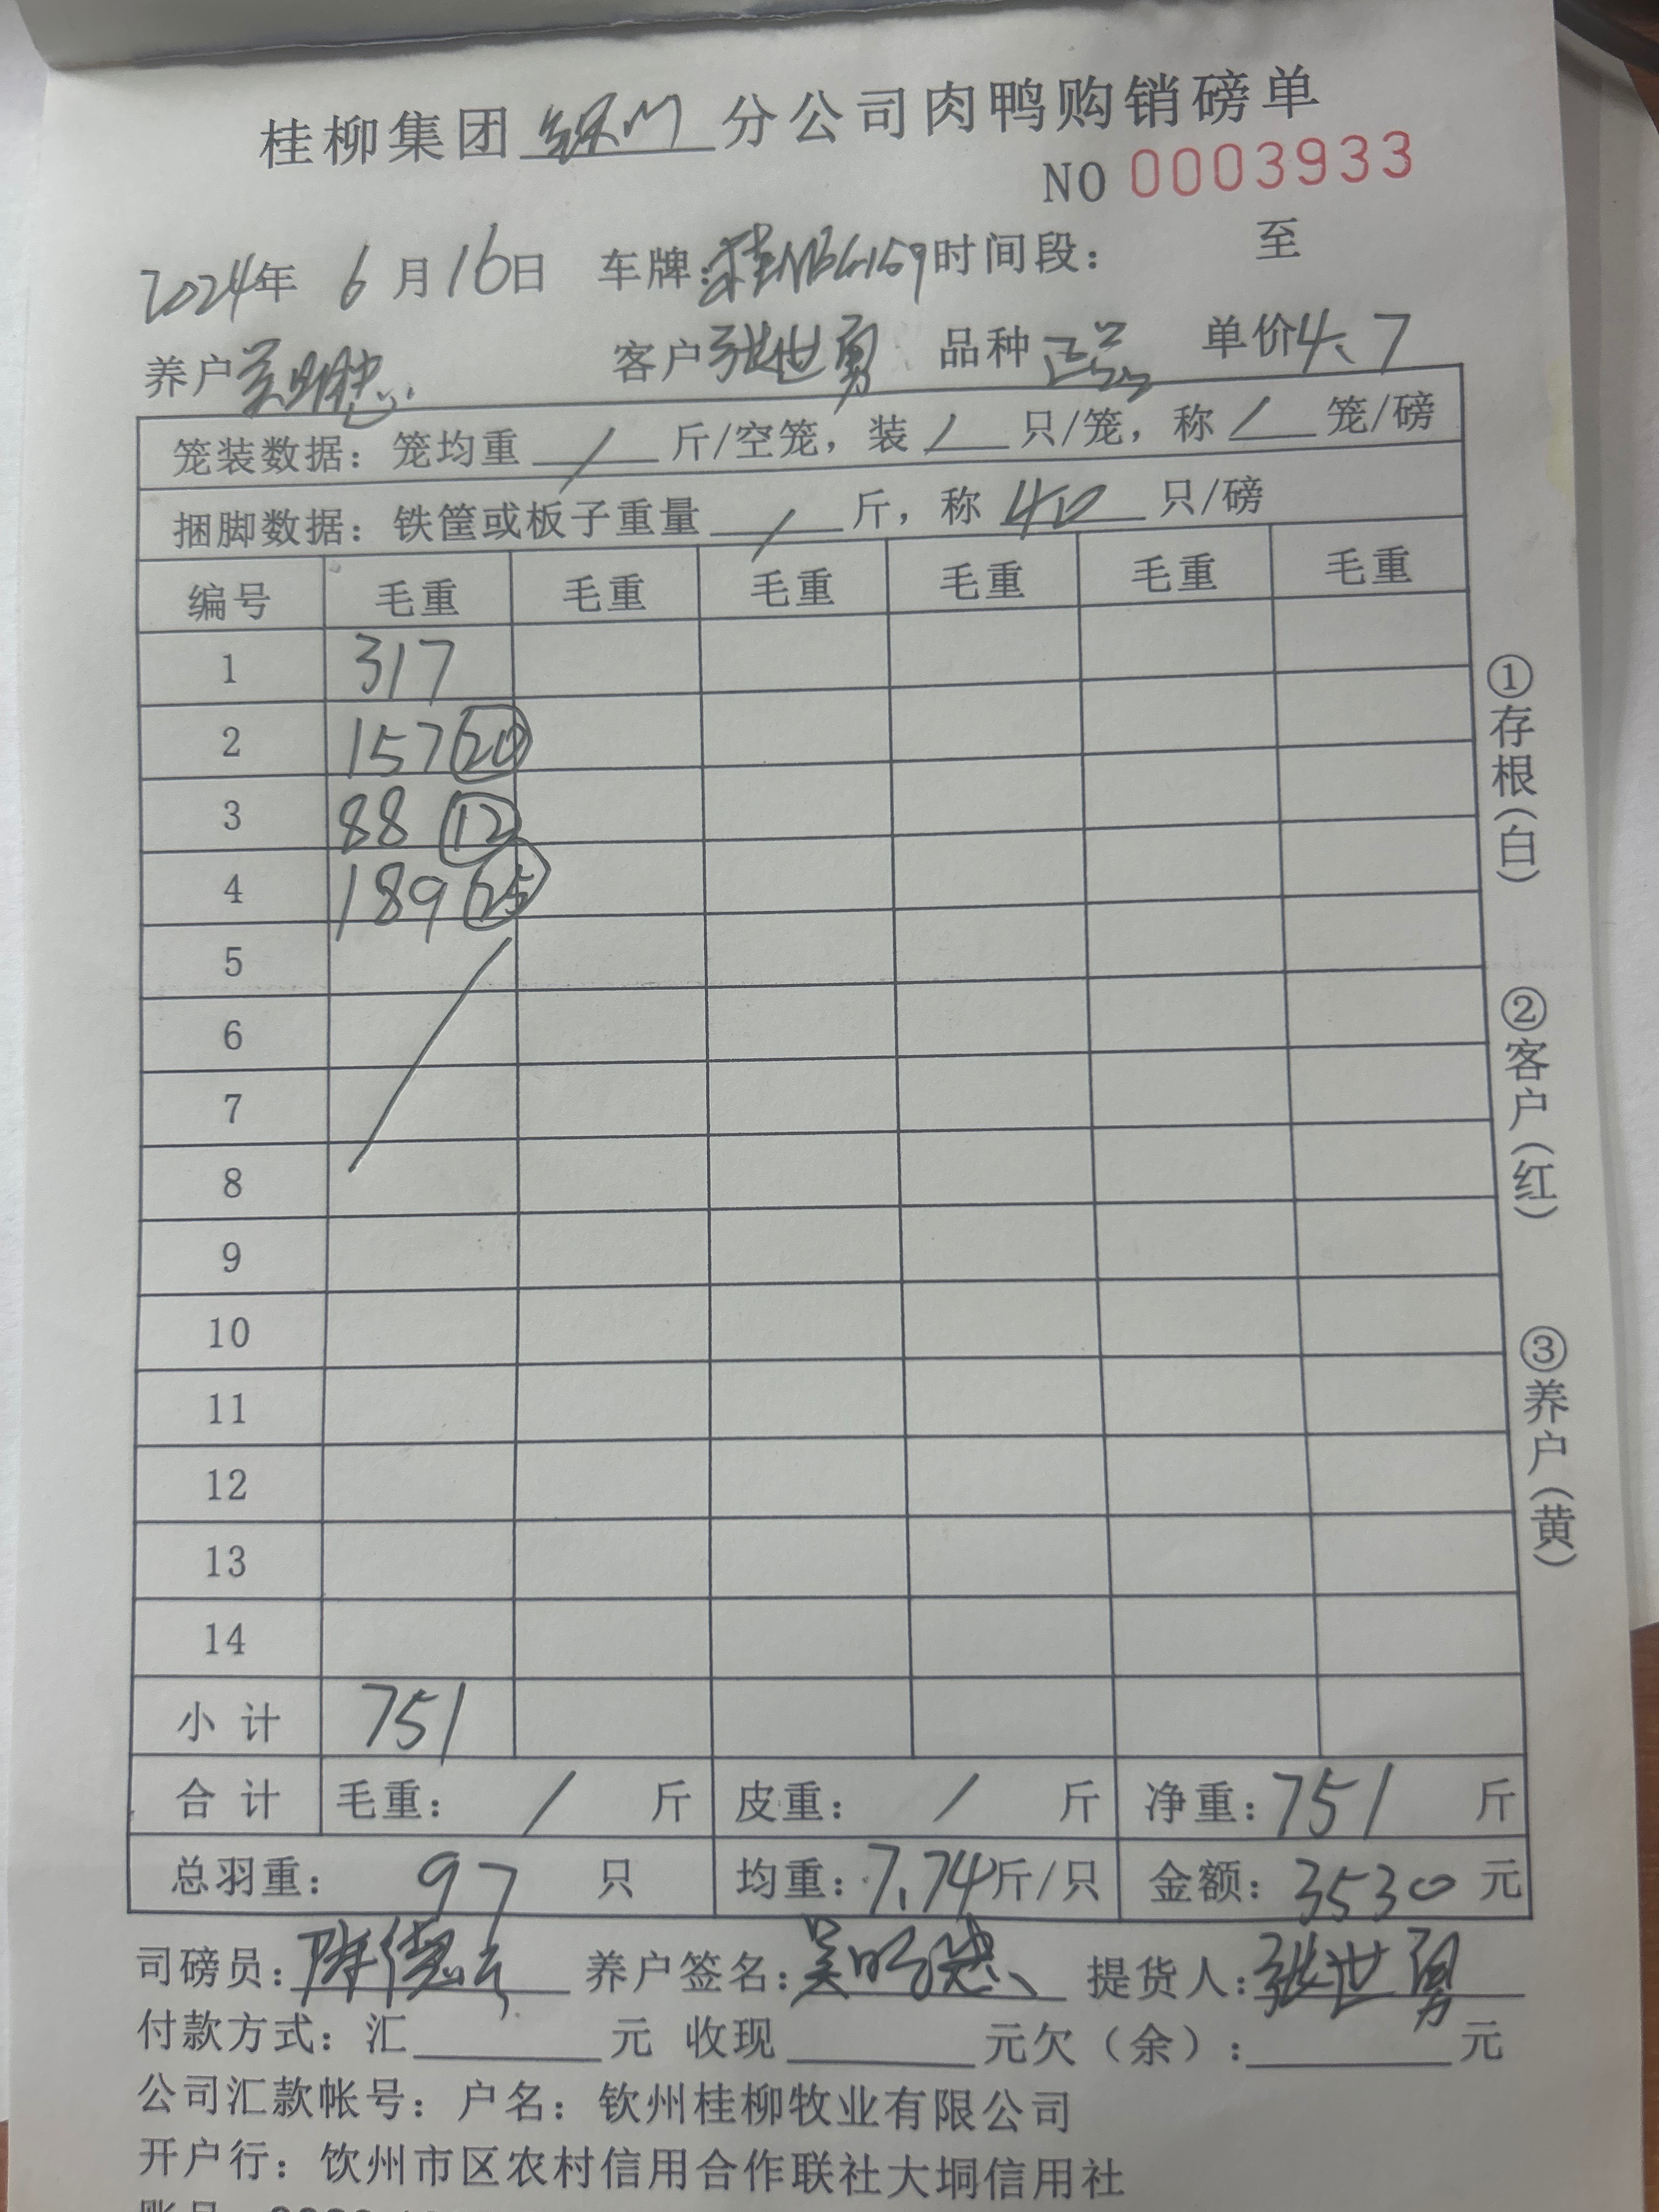 桂柳集团钦州分公司肉鸭购销磅单
NO 0003933
2024年 6月16日 车牌:桂NBG159时间段: 至
养户吴明忠 客户张世勇 品种 单价4、7
笼装数据:笼均重 / 斤/空笼,装 / 只/笼,称 / 笼/磅
捆脚数据:铁筐或板子重量 / 斤,称 40 只/磅
编号 毛重 毛重 毛重 毛重 毛重 毛重
1 317
2 157 20
3 88 12
4 189 25
5
6
7
8
9
10
11
12
13
14
小计 751
合计 毛重: / 斤 皮重: / 斤 净重:751 斤
总羽重: 97 只 均重:7.74斤/只 金额:3530元
司磅员:陈德云 养户签名:吴明忠 提货人:张世勇
付款方式:汇 元 收现 元欠(余): 元
公司汇款帐号:户名:钦州桂柳牧业有限公司
开户行:饮州市区农村信用合作联社大垌信用社
①存根(白)
②客户(红)
③养户(黄)